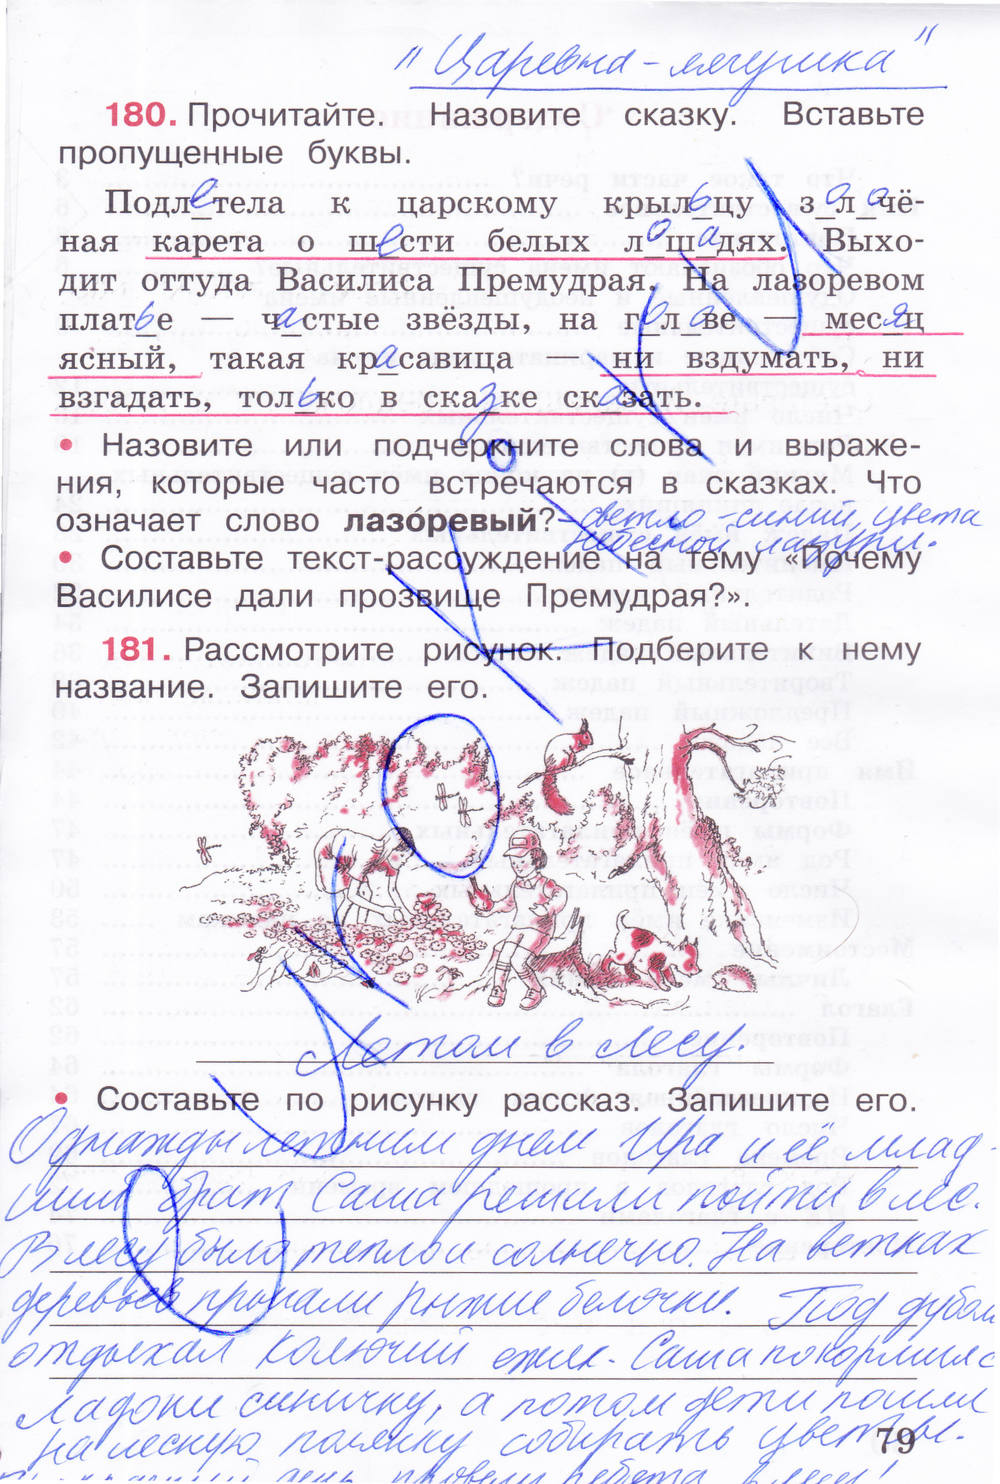 "Царевна-лягушка"
180. Прочитайте. Назовите сказку. Вставьте
пропущенные буквы.
Подлетела к царскому крыльцу золачё-
ная карета о шести белых лошадях. Выхо-
дит оттуда Василиса Премудрая. На лазоревом
платье — частые звёзды, на голаве — месяц
ясный, такая красавица — ни вздумать, ни
взгадать, только в сказке сказать.
• Назовите или подчеркните слова и выраже-
ния, которые часто встречаются в сказках. Что
означает слово лазо́ревый? - светло-синий, цвета
небесной лазури.
• Составьте текст-рассуждение на тему «Почему
Василисе дали прозвище Премудрая?».
181. Рассмотрите рисунок. Подберите к нему
название. Запишите его.
Летом в лесу.
• Составьте по рисунку рассказ. Запишите его.
Однажды летним днём Ира и её млад-
ший брат Саша решили пойти в лес.
В лесу было тепло и солнечно. На ветках
деревьев прыгали рыжие белочки. Под дубом
отдыхал колючий ёжик. Саша покормил с
ладони синичку, а потом дети пошли
на лесную полянку собирать цветы.
79
день провели ребята в лесу!